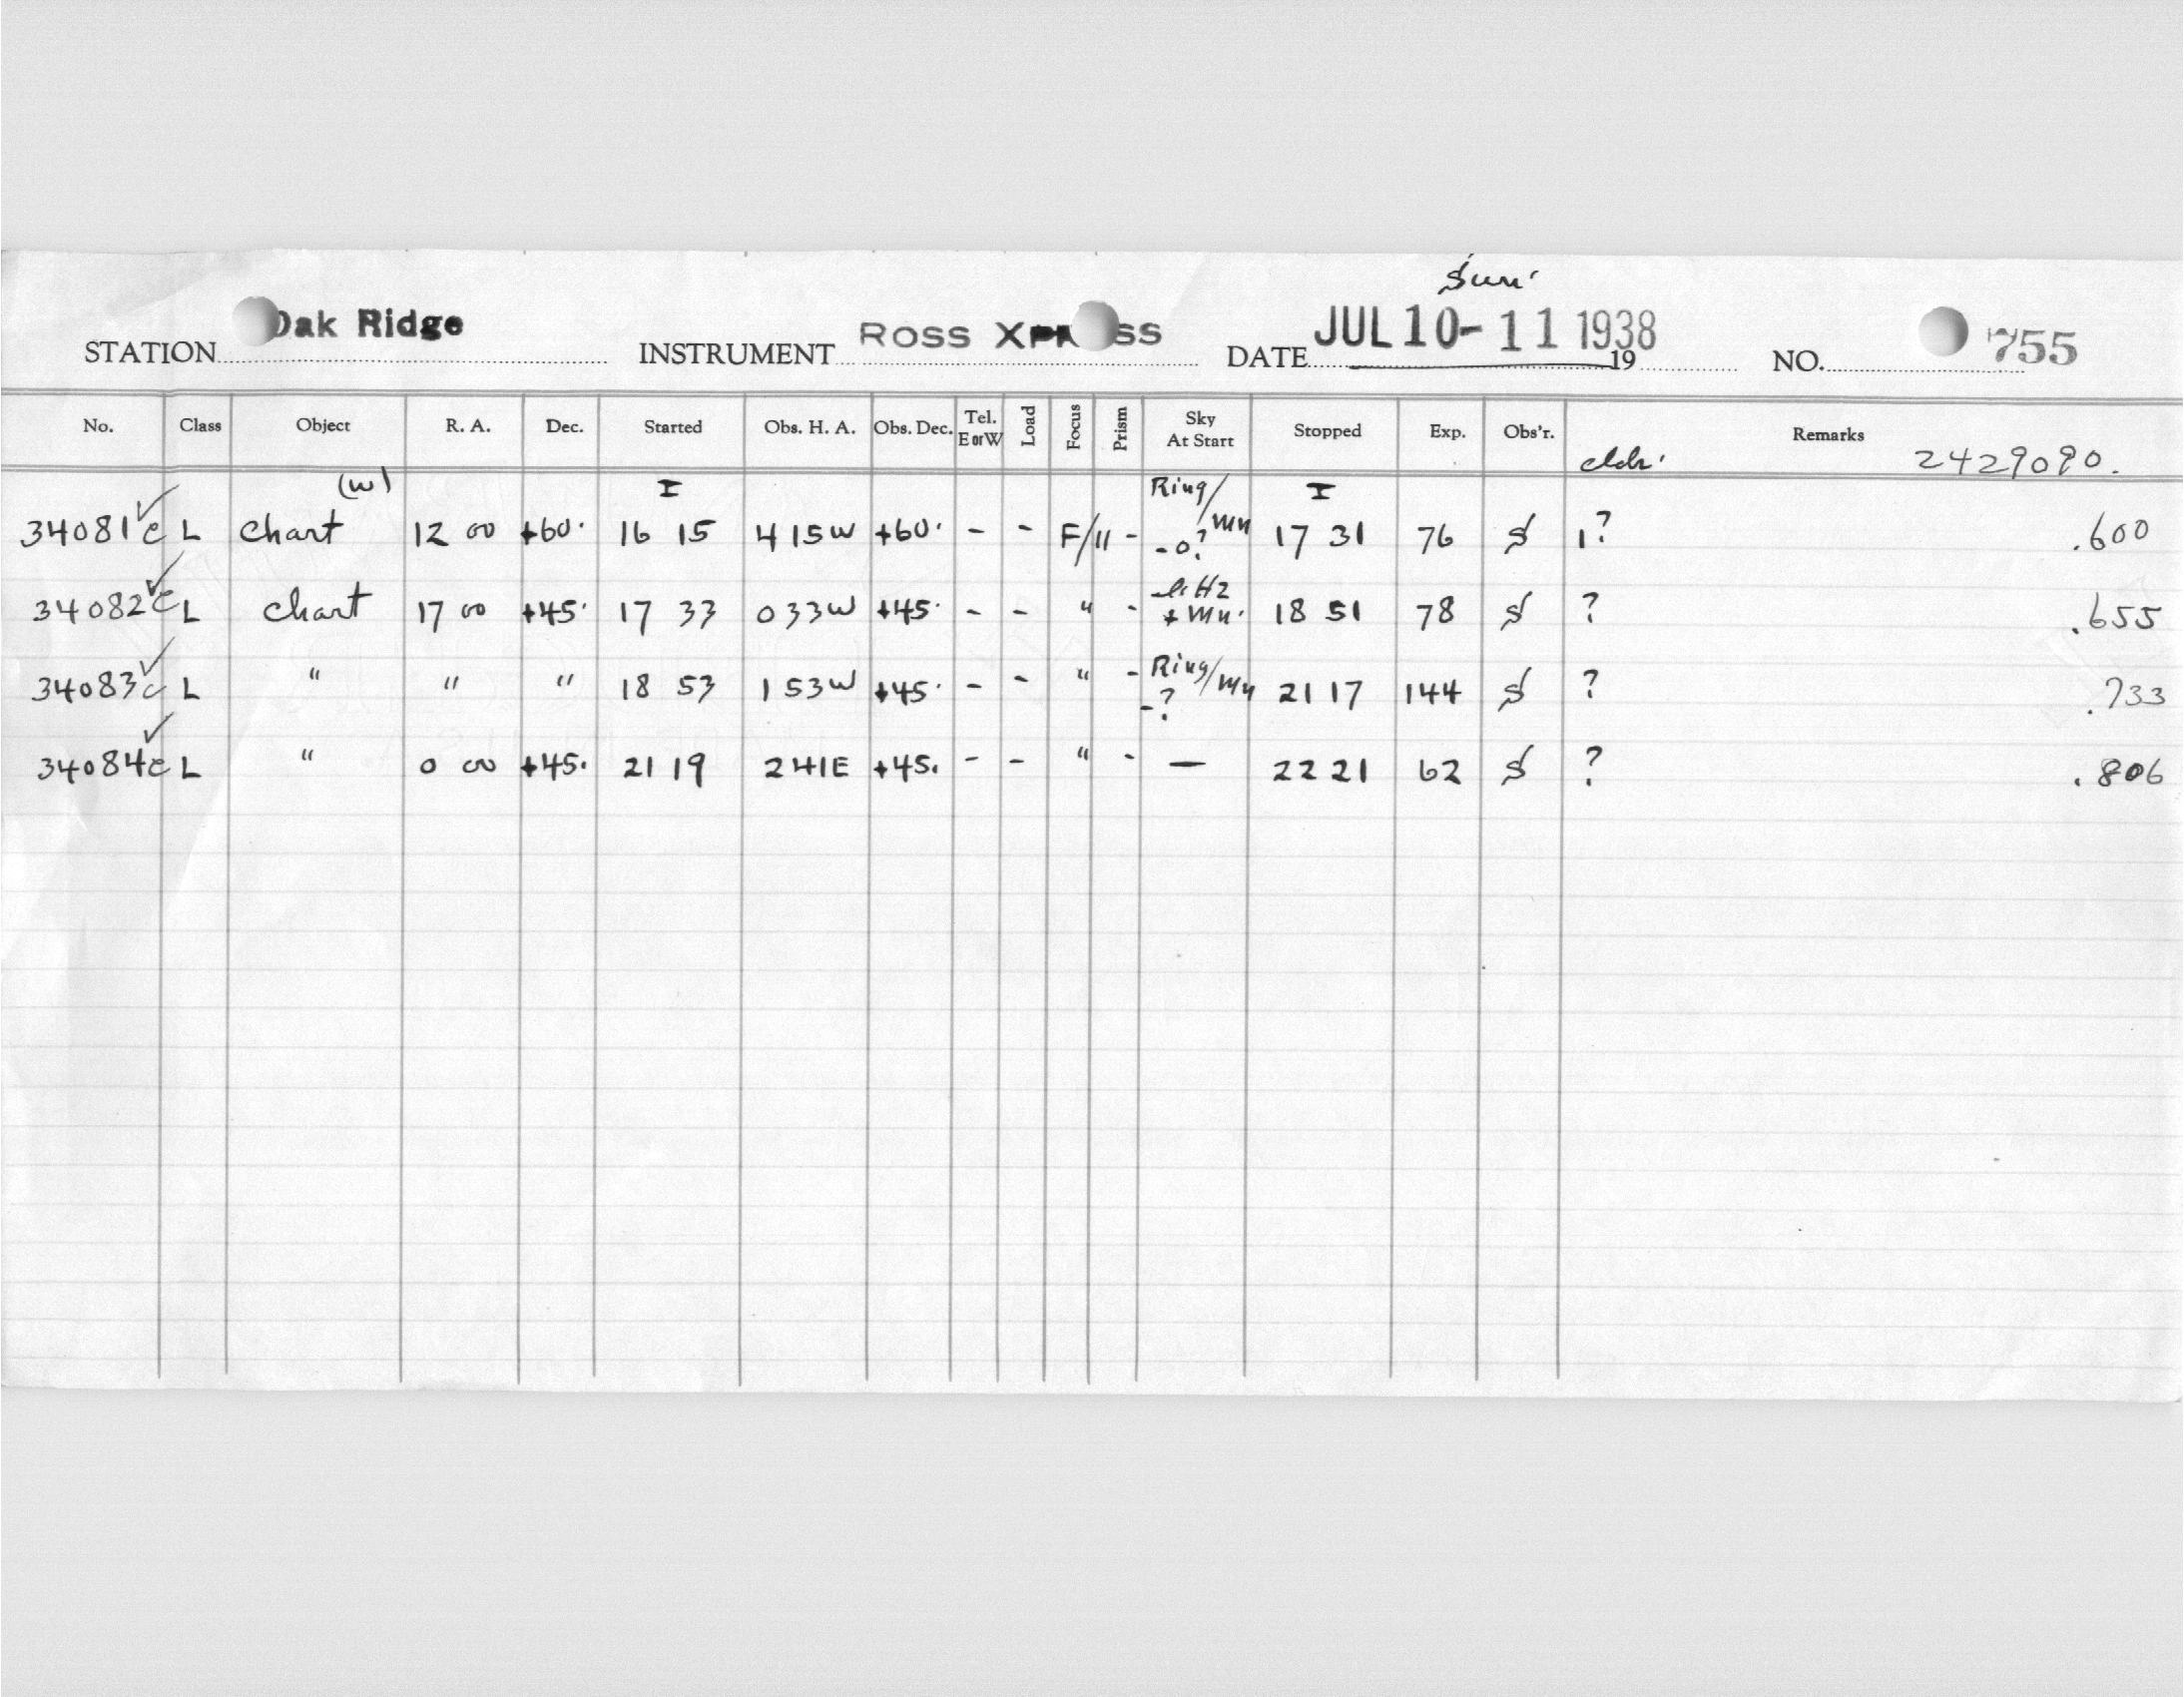 Sun.
STATION Oak Ridge INSTRUMENT ROSS XPRESS DATE JUL 10-11 1938 19 NO. 755
No. Class Object R. A. Dec. Started Obs. H. A. Obs. Dec. Tel. E or W Load Focus Prism Sky At Start Stopped Exp. Obs'r. Remarks
2429090.
(w) I Ring/Mn I
34081c L Chart 12 00 +60. 16 15 4 15W +60. - - F/11 - -0? 17 31 76 S 1? .600
34082c L Chart 17 00 +45. 17 33 0 33W +45. - - " - Hz + Mn. 18 51 78 S ? .655
34083c L " " " 18 53 1 53W +45. - - " - Ring/Mn -? 21 17 144 S ? .733
34084c L " 0 00 +45. 21 19 2 41E +45. - - " - — 22 21 62 S ? .806